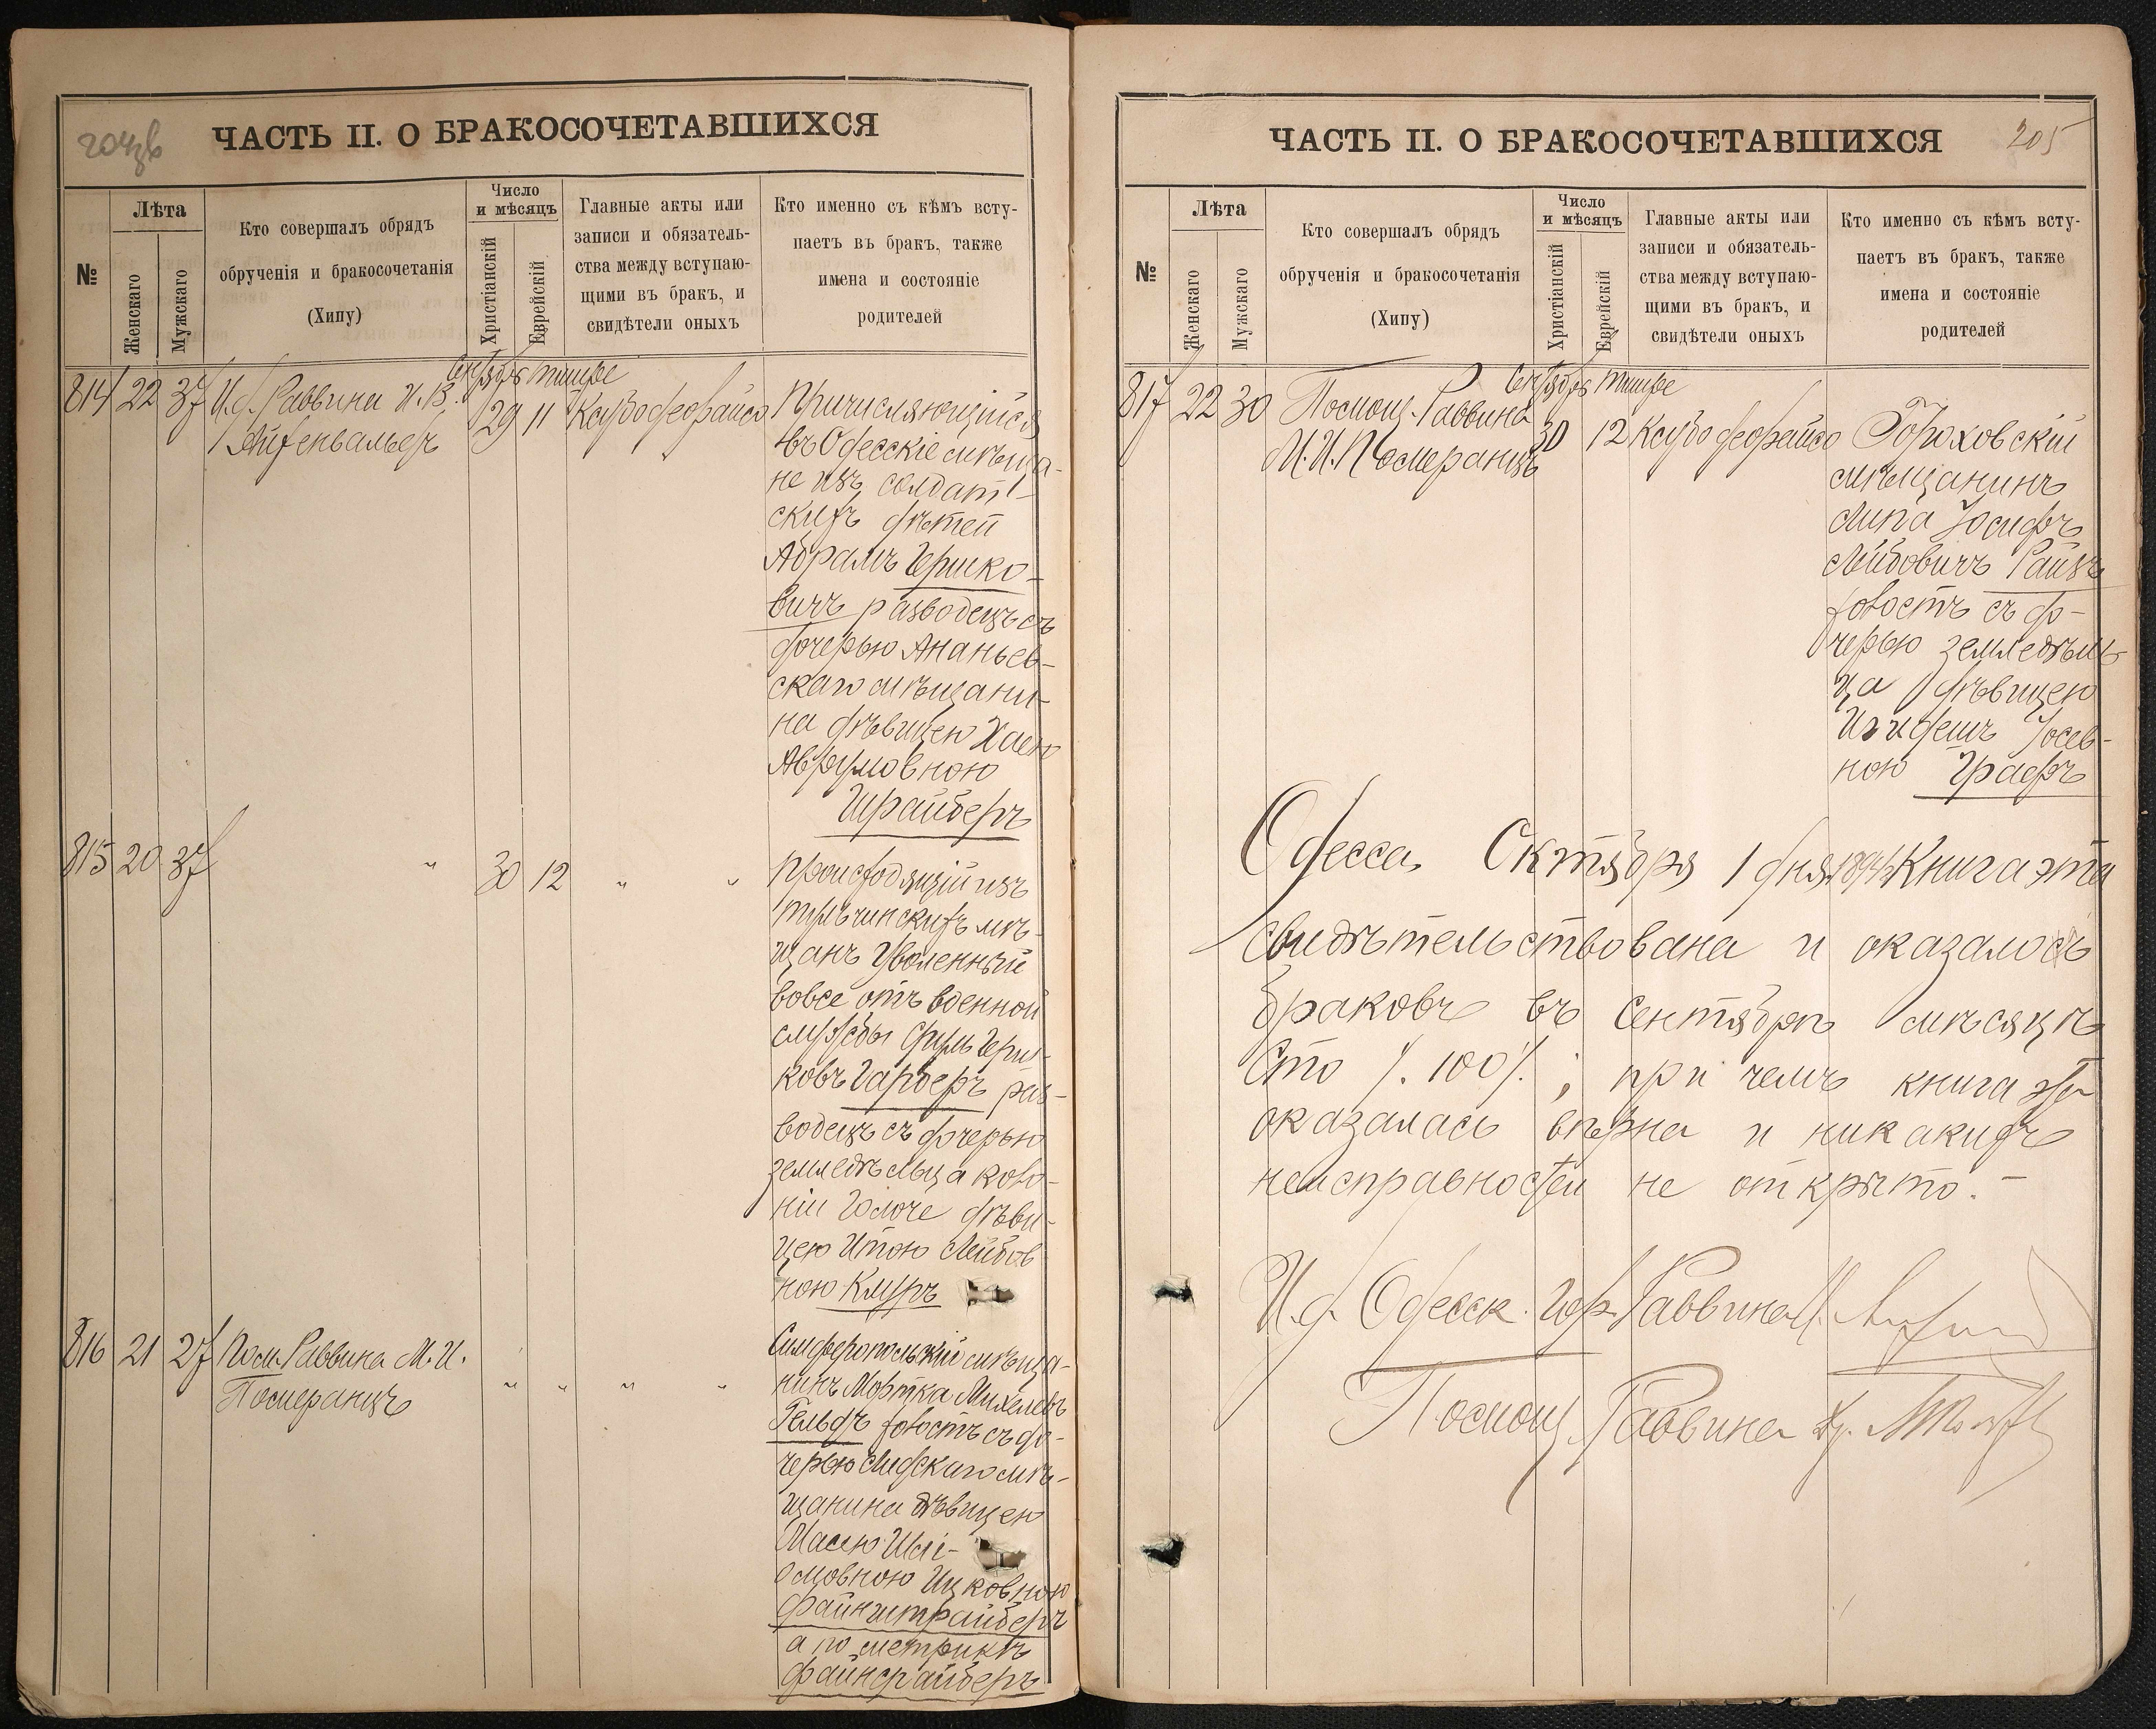 204об
ЧАСТЬ II. О БРАКОСОЧЕТАВШИХСЯ
№
Лѣта
Женскаго
Мужскаго
Кто совершалъ обрядъ
обрученія и бракосочетанія
(Хипу)
Число
и мѣсяцъ
Христіанскій
Еврейскій
Главные акты или
записи и обязатель-
ства между вступаю-
щими въ бракъ, и
свидѣтели оныхъ
Кто именно съ кѣмъ всту-
паетъ въ бракъ, также
имена и состояніе
родителей
Сентябрь тишре
814 22 37 И.д. Раввина
29 11
Причисляющійся
въ Одесскіе мѣща-
не изъ солдат-
скихъ дѣтей
Абрамъ Гершко-
вичъ разводецъ съ
дочерью Ананьев-
скаго мѣщани-
на дѣвицею Хаею
Аврумовною
Шрайберъ
815 20 37 " 30 12 " "
происходящій изъ
тульчинскихъ мѣ-
щанъ уволенный
вовсе отъ военной
службы Сруль Герш-
ковъ Гарберъ раз-
водецъ съ дочерью
земледѣльца коло-
ніи дѣви-
цею Итою Лейбов-
ною
816 21 27 Пом. Раввина М. И.
Померанцъ
" " " "
Симферопольскій мѣща-
нинъ Мортка Михелевъ
Гельдъ холостъ съ до-
черью Лидскаго мѣ-
щанина дѣвицею
Масею Шлі-
омовною Ицковною
Файнштрайберъ
а по метрикѣ
Файнсрайберъ
205
ЧАСТЬ II. О БРАКОСОЧЕТАВШИХСЯ
№
Лѣта
Женскаго
Мужскаго
Кто совершалъ обрядъ
обрученія и бракосочетанія
(Хипу)
Число
и мѣсяцъ
Христіанскій
Еврейскій
Главные акты или
записи и обязатель-
ства между вступаю-
щими въ бракъ, и
свидѣтели оныхъ
Кто именно съ кѣмъ всту-
паетъ въ бракъ, также
имена и состояніе
родителей
Сентябрь тишре
817 22 30 Помощ. Раввина
М. И. Померанцъ
30 12
Гороховскій
мѣщанинъ
Липа Іосифъ
Лейбовичъ Райзъ
холостъ съ до-
черью земледѣль-
ца дѣвицею
Іосев-
ною Графъ
Одесса Октября 1 дня Книга эта
свидѣтельствована и оказалось
браковъ въ Сентябрѣ мѣсяцѣ
Сто /.100/.; при чемъ книга эта
оказалась вѣрна и никакихъ
неисправностей не открыто.–
И.д. Одесск. гор. Раввина
Помощ. Раввина